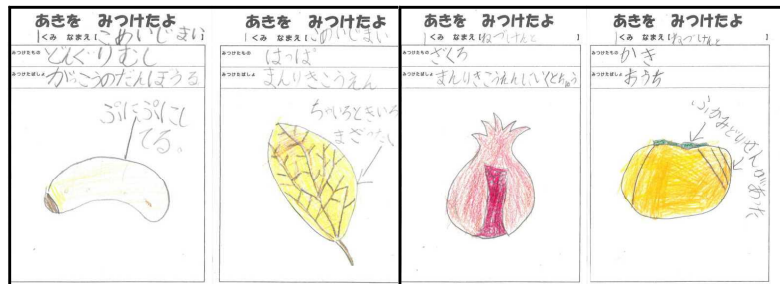 あきを みつけたよ
1くみ なまえ【こめいじまい】
みつけたもの どんぐりむし
みつけたばしょ がっこうのだんぼうる
ぷにぷにし
てる。
あきを みつけたよ
1くみ なまえ【こめいじまい】
みつけたもの はっぱ
みつけたばしょ まんりきこうえん
ちゃいろときいろ
まざってい
あきを みつけたよ
1くみ なまえ【ねづけんと】
みつけたもの ざくろ
みつけたばしょ まんりきこうえんにいくとちゅう
あきを みつけたよ
1くみ なまえ【ねづけんと】
みつけたもの かき
みつけたばしょ おうち
ふかみどり
せんがあった